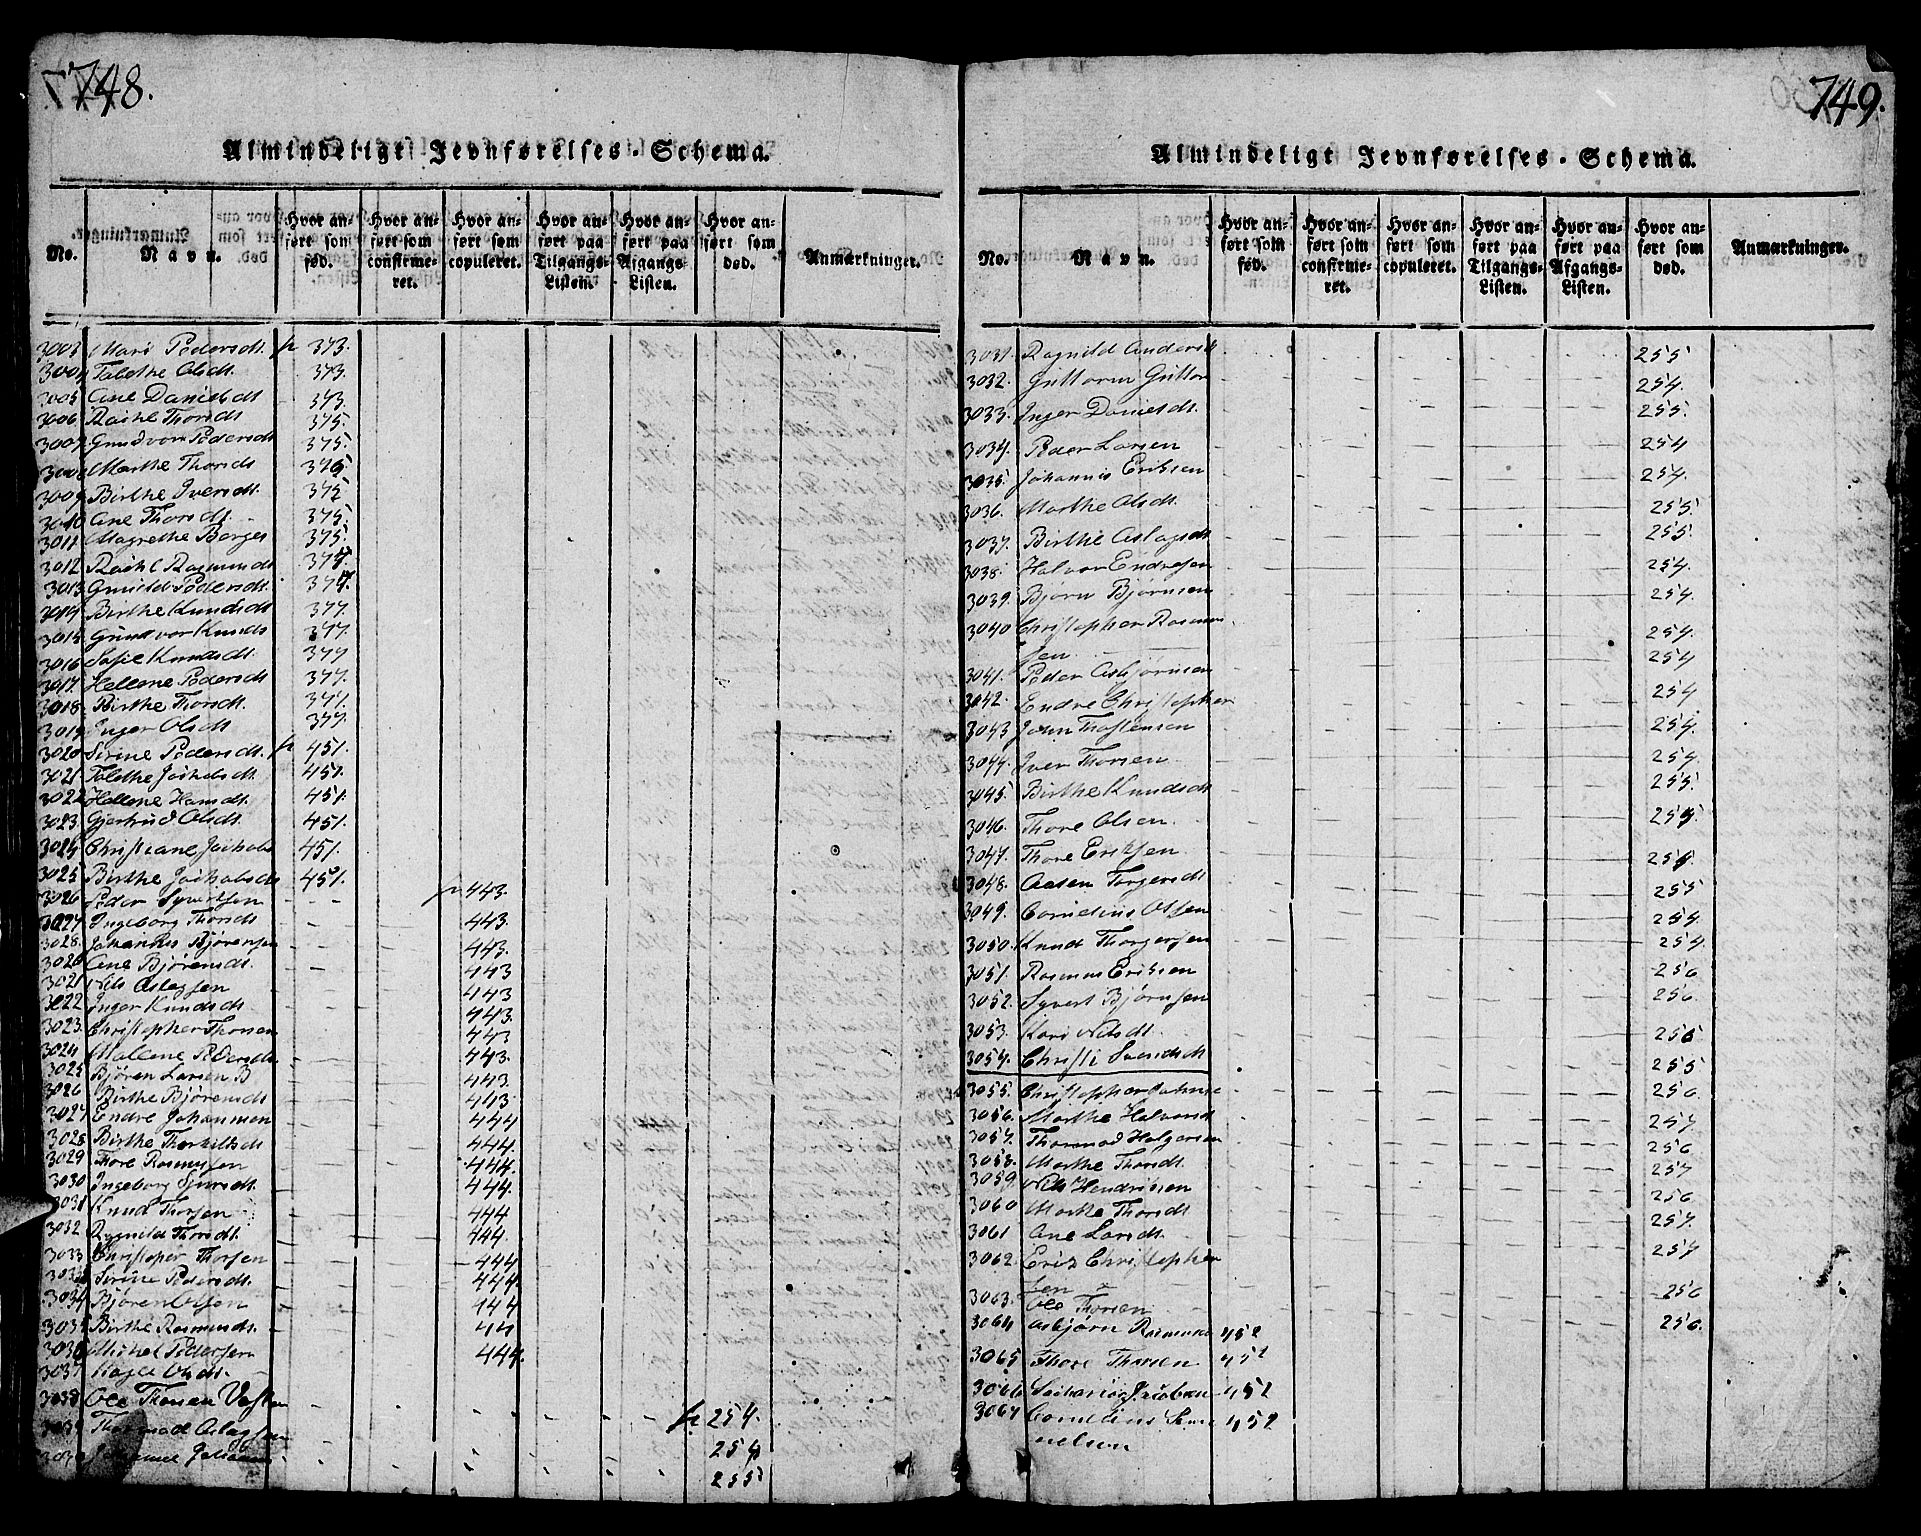 748.
Almindeligt Jevnførelses-Schema.
No. Navn. Hvor anført som fød. Hvor anført som confirmeret. Hvor anført som copuleret. Hvor anført paa Tilgangs-Listen. Hvor anført paa Afgangs-Listen. Hvor anført som død. Anmærkninger.
3003 Mari Pedersdt. p 373.
3004 Tabithe Olsdt. 373.
3005 Ane Danielsdt 373
3006. Rachel Thorsdt 375.
3007. Gundvor Pedersdt 375.
3008 Marthe Thorsdt 375
3009 Birthe Iversdt. 375
3010 Ane Thorsdt. 375.
3011 Magrethe Borges 375.
3012 Rachel Rasmunsdt 377.
3013 Gunild Pedersdt. 377.
3014 Birthe Knudsdt 377.
3015 Gundvor Knuds 377.
3016 Sofie Knudsdt. 377
3017. Hellene Pedersdt 377.
3018. Birthe Thorsdt. 377.
3019 Inger Olsdt 377.
3020 Sirine Pedersdt. p 451.
3021 Tabithe Jachobsdt 451.
3022 Hellene Hansdt. 451.
3023. Gjertrud Olsdt. 451.
3024 Christiane Jachobs 451.
3025 Birthe Jachobsdt 451.
3026 Peder Syvertsen - - p 443.
3027 Ingeborg Thorsdt 443.
3028. Johannes Bjørensen 443.
3020 Ane Bjørensdt. 443
3021 Nils Aslagsen 443
3022 Inger Knudsdt 443.
3023. Christopher Thorsen 443
3024 Malene Pedersdt. 443.
3025 Bjøren Larsen B 443.
3026 Birthe Bjørensdt 443
3027 Endre Johannesen 444
3028 Birthe Thorkildsdt 444.
3029 Thore Rasmussen 444.
3030 Ingeborg Sjursdt. 444.
3031 Knud Thorsen 444
3032 Ragnild Thorsdt. 444.
3033 Christopher Thorsen 444
3033 Sirine Pedersdt. 444.
3034 Bjøren Olsen 444
3035 Birthe Rasmusdt. 444
3036 Michel Pedersen 444.
3037 Olsdt.
3038 Ole Thorsen p 254.
3039 Thormod Aslagsen 254
3040 255
749.
Almindeligt Jevnførelses-Schema.
No. Navn. Hvor anført som fød. Hvor anført som confirmeret. Hvor anført som copuleret. Hvor anført paa Tilgangs-Listen. Hvor anført paa Afgangs-Listen. Hvor anført som død. Anmærkninger.
3031. Ragnild Andersdt 255
3032. Guttorm Guttor 254.
3033. Inger Danielsdt. 255.
3034. Peder Larsen 254
3035. Johannis Eriksen 254.
3036. Marthe Olsdt. 255.
3037. Birthe Aslagsdt 255.
3038. Halvor Endresen 254.
3039. Bjørn Bjørnsen 254.
3040 Christopher Rasmus 254.
sen. 254
3041. Peder Asbjørnsen
3042. Endre Christopher 254
3043 John Thostensen 254.
3044. Iver Thorsen 254.
3045. Birthe Knudsdt 255.
3046. Thore Olsen. 255
3047. Thore Eriksen 255.
3048. Aasen Torgersdt 255
3049. Cornelius Olsen 254
3050. Knud Thorgersen 254.
3051. Rasmus Eriksen 256
3052. Syvert Bjørnsen 256.
3053. Kari Nilsdt. 256
3054. Christi Svendsdt 255
3055. Christopher 256.
3056. Marthe Halvorsdt 257.
3057. Thormod Holgersen 256
3058. Marthe Thorsdt. 257
3059 Nils Hendriksen
3060 Marthe Thorsdt 256
3061 Ane Larsdt. 257.
3062. Erik Christopher 257
sen
3063. Ole Thorsen 256
3064 Asbjørn Rasmuns 452 256.
3065 Thore Thorsen 452
3066 Sacharias Jacobsen 452
3067 Cornelius Sam 452
uelsen